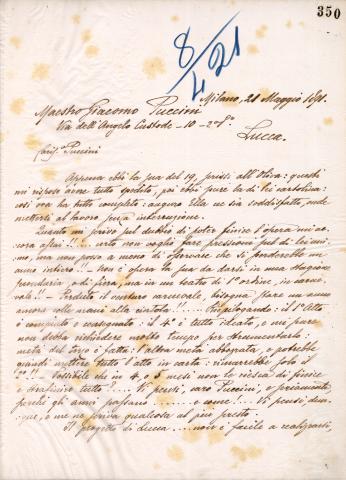 350
8/4 21
Milano, 21 Maggio 1891.
Maestro Giacomo Puccini
Via dell'Angelo Custode - 10 - 2° p°
Lucca.
Cariss° Puccini
Appena ebbi la sua del 19, scrissi all'Oliva: questi
mi rispose avere tutto spedito, poi ebbi pure la di lei cartolina:
così ora ha tutto completo: auguro Ella ne sia soddisfatto, onde
mettersi al lavoro senza interruzione.
Quanto mi scrive sul dubbio di poter finire l'opera mi ac-
cora assai!!... certo non voglio fare pressioni sul di lei ani-
mo, ma non posso a meno di osservare che si perderebbe un
anno intiero!! - Non è opera la sua da darsi in una stagione
secondaria o di fiera, ma in un teatro di 1° ordine, in carne-
vale!! - Perduto il venturo carnevale, bisogna stare un anno
ancora colle mani alla cintola!!... Riepilogando: il 1° atto
è compiuto e consegnato: il 4° è tutto ideato, e mi pare
non debba richiedere molto tempo per strumentarlo:
metà del 2° è fatto: l'altra metà abbozzata, e potrebbe
quindi mettere tutto l'atto in carta: rimarrebbe solo il
3°!! - Possibile che in 4, o 5 mesi non le riesca di finire
e tutto.... Vi pensi, caro Puccini, e seriamente;
perché gli anni passano.... e come!! Vi pensi dun-
que, e me ne scriva qualcosa al più presto.
Il progetto di Lucca.... non è facile a realizzarsi,